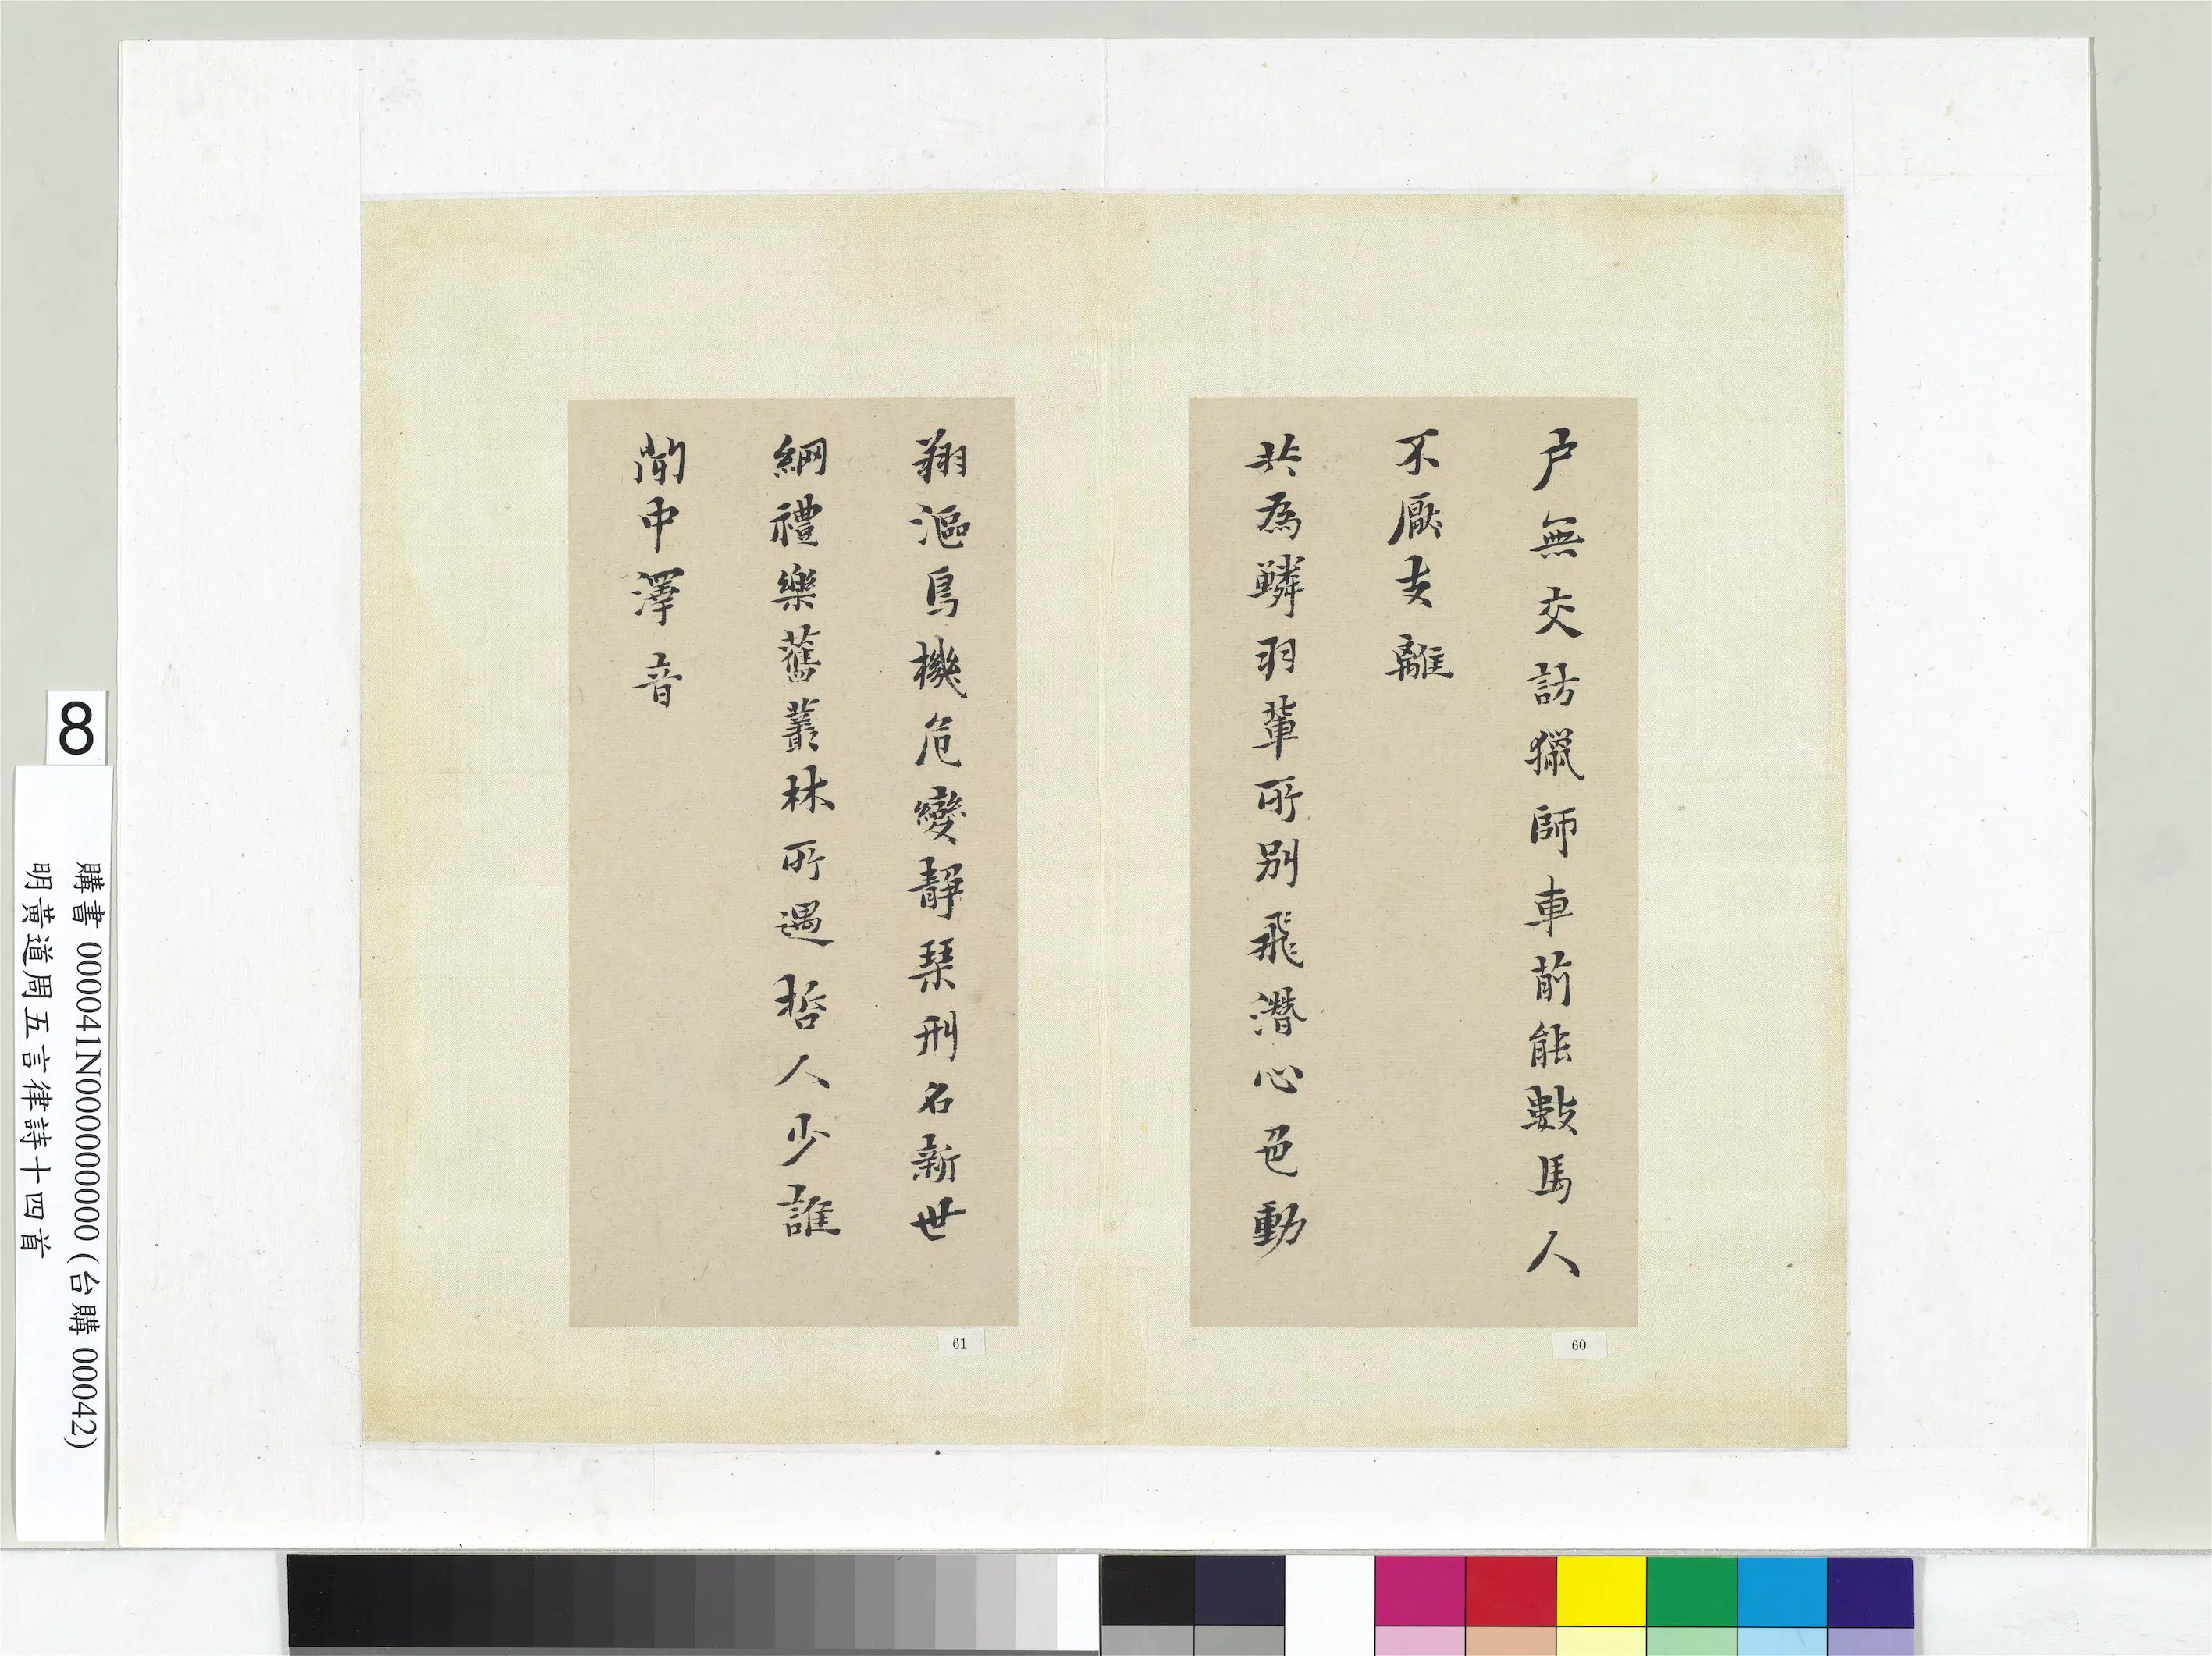 戶無交訪獵師車前能數馬人
不厭支離
共為鱗羽輩所別飛潛心色動
翔漚鳥機危變靜琹刑名新世
綱禮樂舊叢林所遇哲人少誰
閒中澤音
60
61
8
購書 000041N000000000 (台購 00042)
明黃道周五言律詩十四首